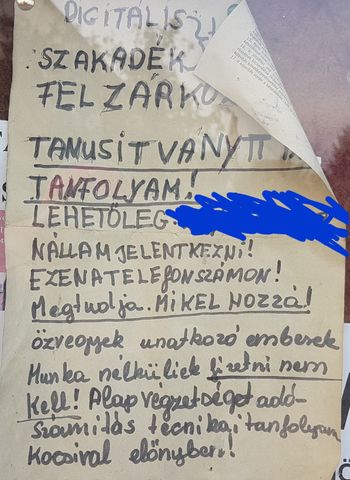 DIGITALIS
SZAKADÉK
FELZÁRKÓZ
TANUSITVÁNYTT
TANFOLYAM!
LEHETŐLEG:
NÁLLAM JELENTKEZNI!
EZEN A TELEFONSZÁMON!
Megtudja. MI KEL HOZZÁ!
özvegyek unatkozó emberek
Munka nélküliek fizetni nem
kell! Alap végzetséget adó-
számitás technikai tanfolyam
Kocsival előnyben!